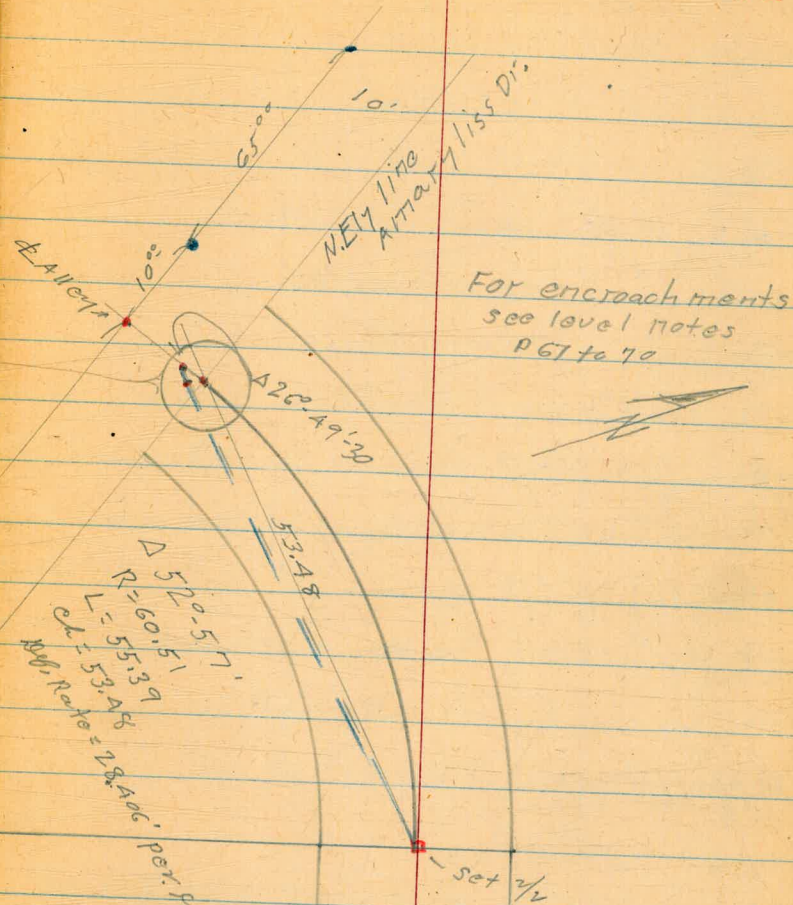 10'
65⁰⁰
N.Ely line
Amaryliss Dr.
10⁰⁰
℄ Alley
For encroachments
see level notes
P 67 to 70
Δ 26°-49'-30
53.48
Δ 52°-57'
R=60.51
L=55.39
ch=53.48
Def. Rate = 28.406' per. f
set 2/2